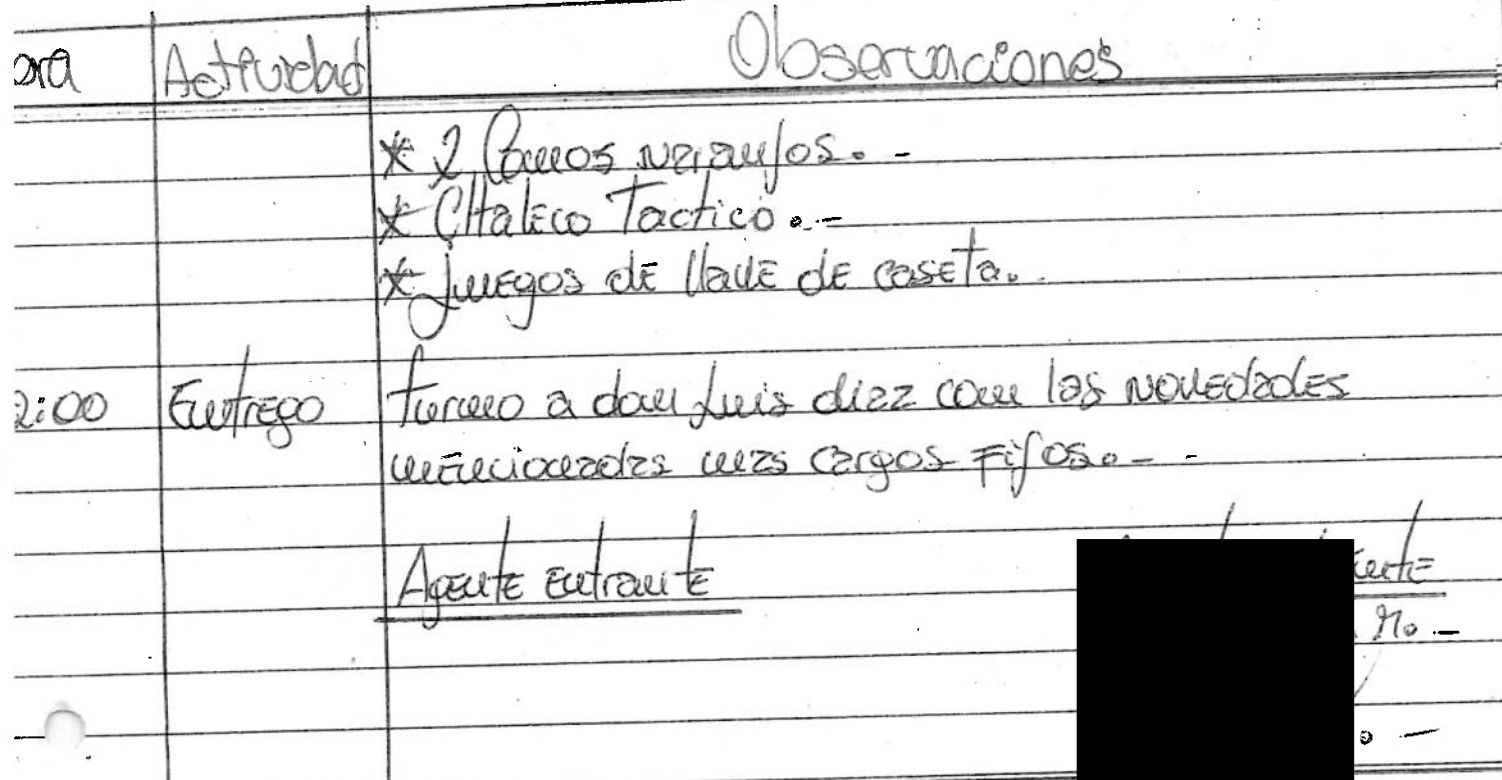 ora Actividad Observaciones
* 2 Conos Naranjos. -
* CHaleco Tactico. -
* Juegos de llave de caseta.
2:00 Entrego Turno a don Luis diaz con las Novedades
mencionadas mas cargos Fijos. - -
Agente entrante